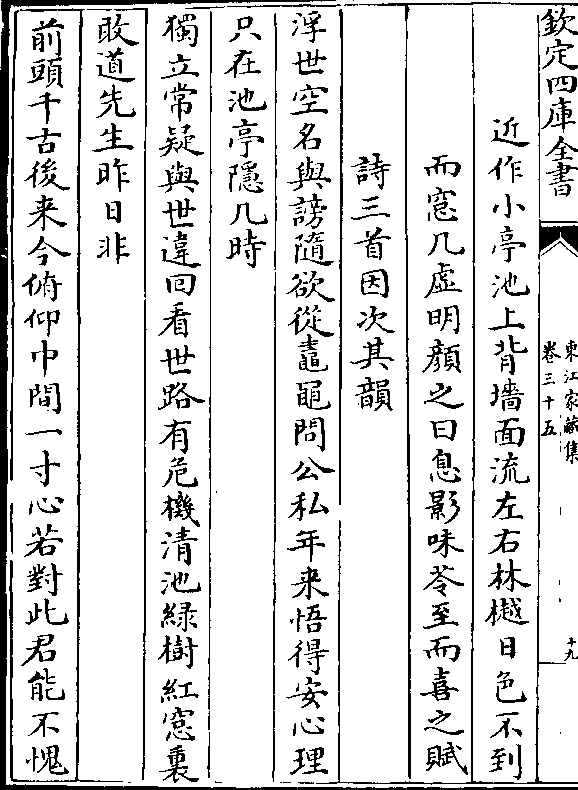 欽定四庫全書
東江家藏集
卷三十五
十九
近作小亭池上背墻面流左右林樾日色不到
而窓几虛明顔之曰息影味芩至而喜之賦
詩三首因次其韻
浮世空名與謗隨欲從鼃黽問公私年来悟得安心理
只在池亭隱几時
獨立常疑與世違回看世路有危機清池緑樹紅窓裏
敢道先生昨日非
前頭千古後来今俯仰中間一寸心若對此君能不愧